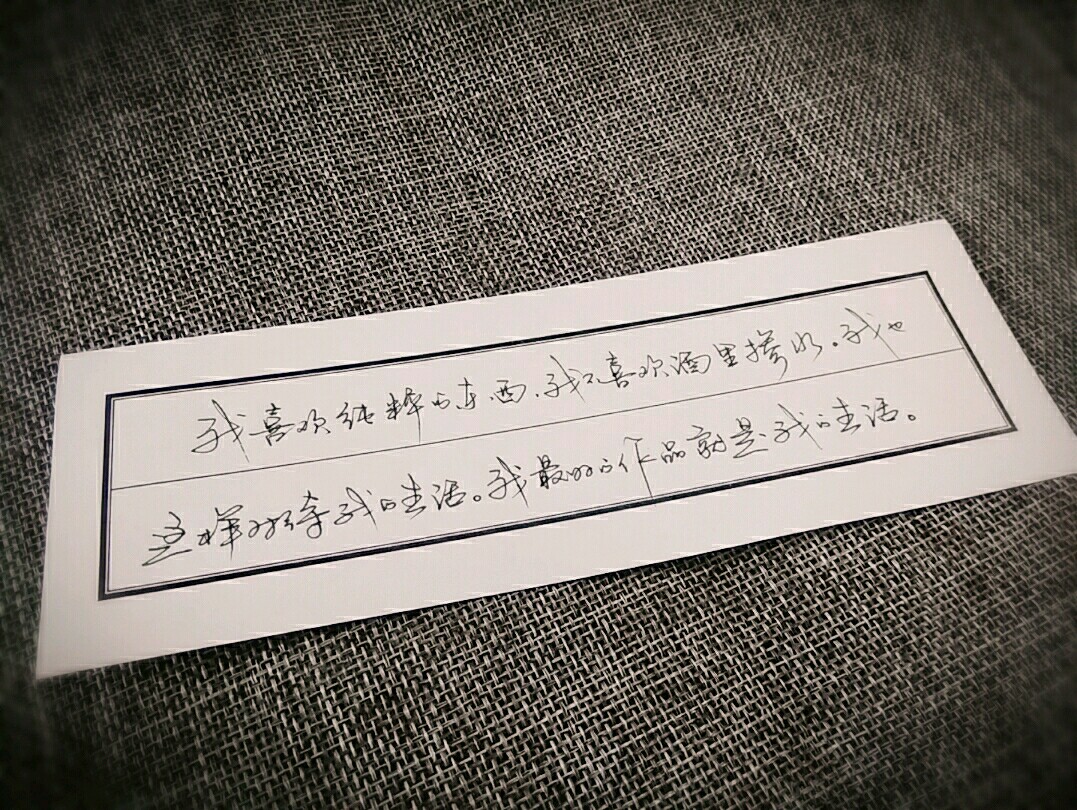 我喜欢纯粹的东西,我不喜欢酒里掺水。我也
这样对待我的生活。我最好的作品就是我的生活。